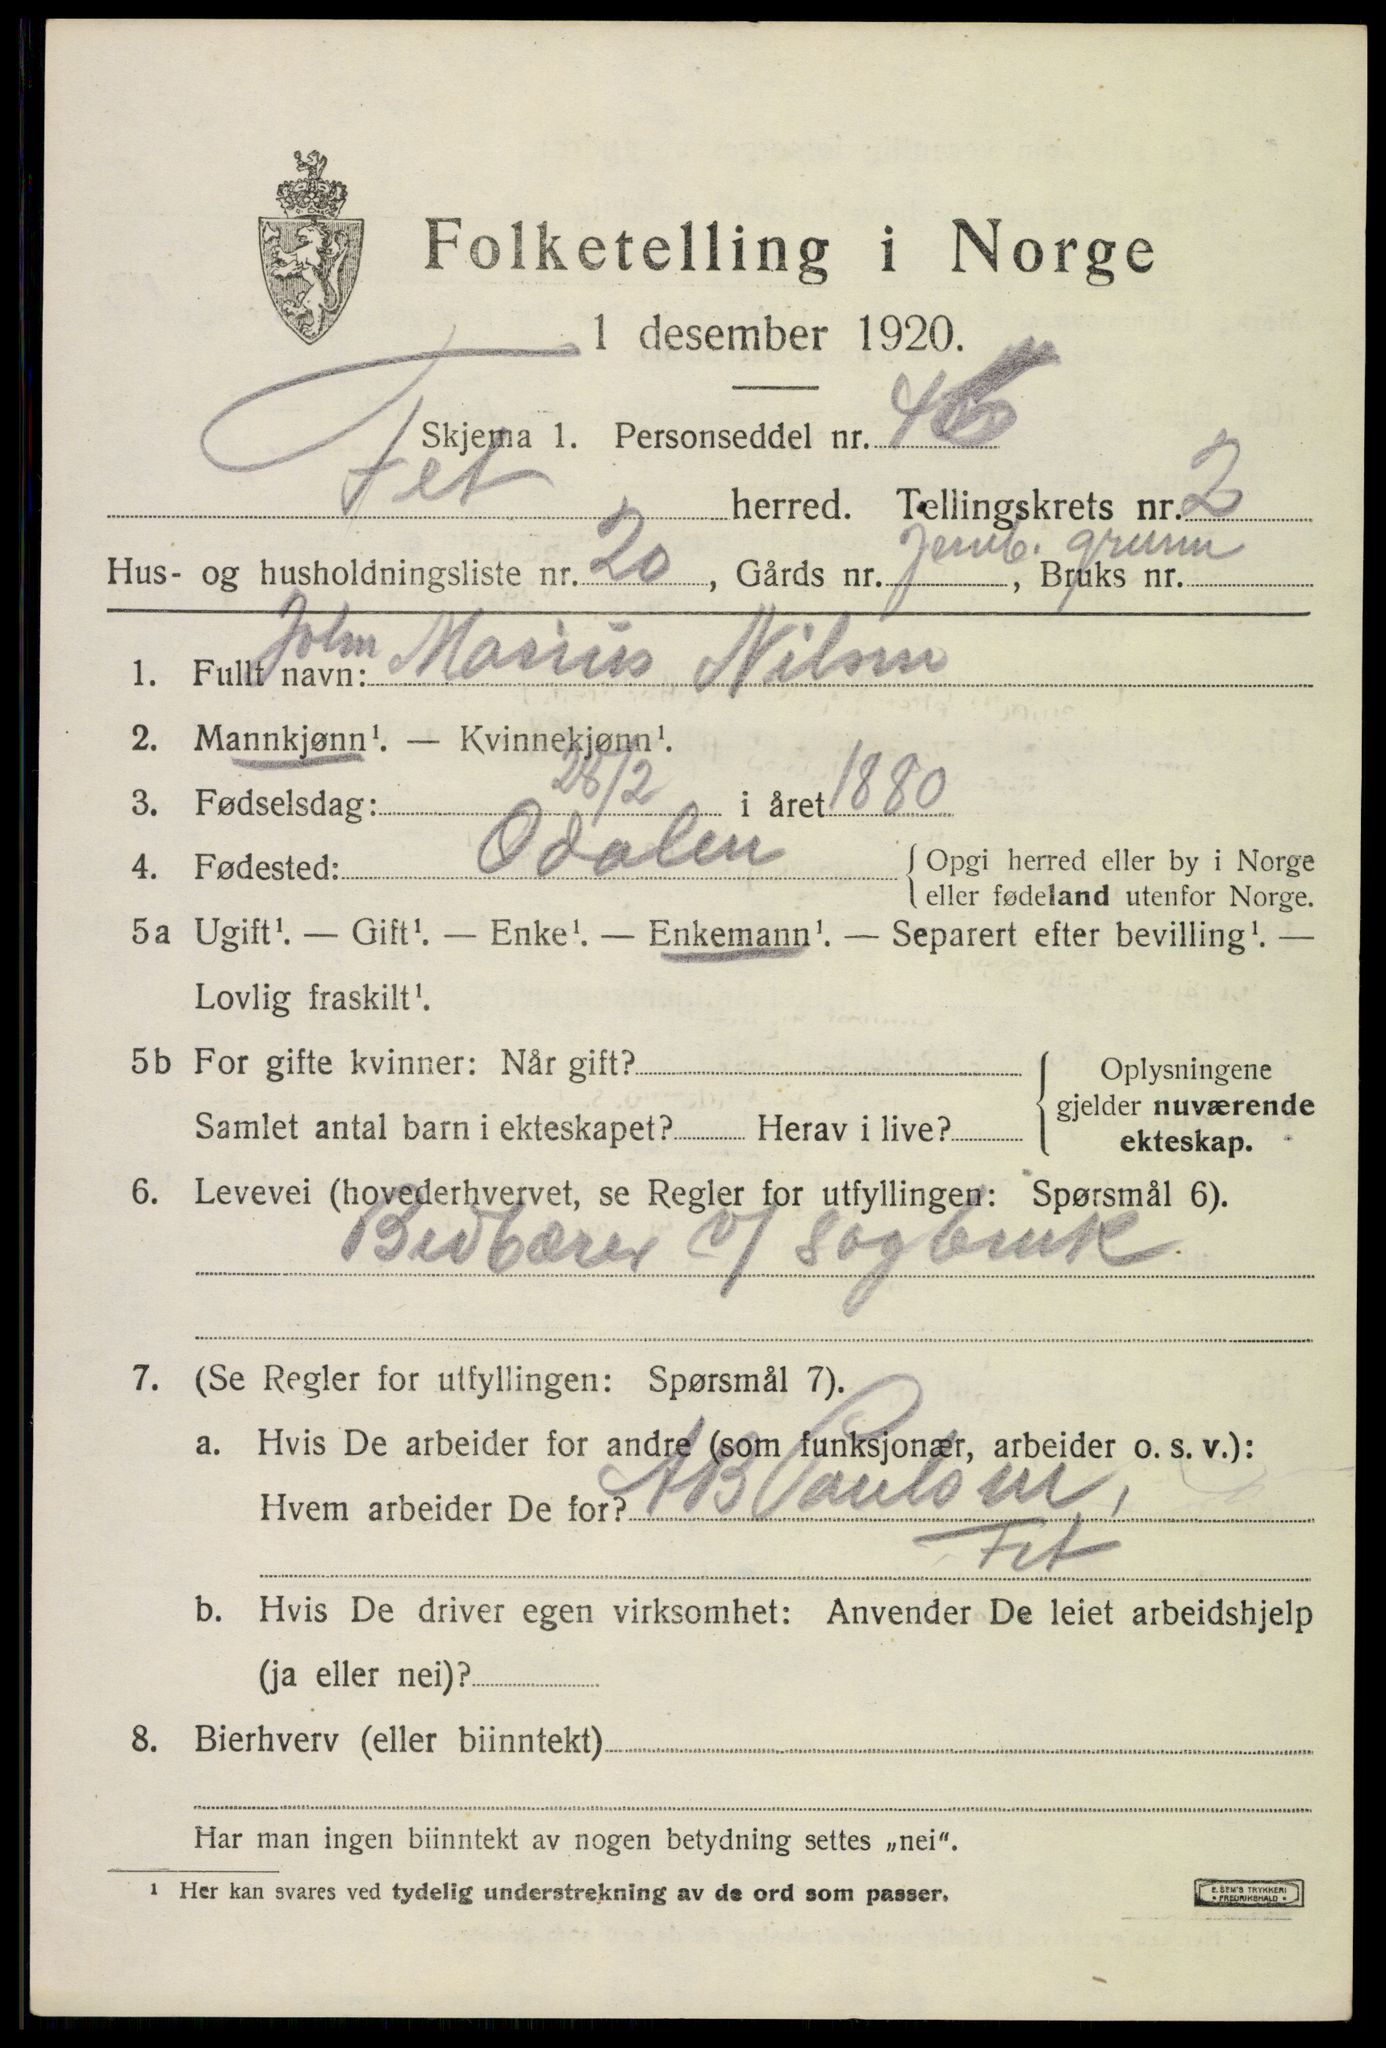 Folketelling i Norge
1 desember 1920.
Skjema 1. Personseddel nr.
Fet herred. Tellingskrets nr. 2
Hus- og husholdningsliste nr. 20, Gårds nr. Jernb. grunn, Bruks nr.
1. Fullt navn: John Marius Nilsen
2. Mannkjønn¹. — Kvinnekjønn¹.
3. Fødselsdag: 28/2 i året 1880
4. Fødested: Odalen { Opgi herred eller by i Norge
eller fødeland utenfor Norge.
5a Ugift¹. — Gift¹. — Enke¹. — Enkemann¹. — Separert efter bevilling¹. —
Lovlig fraskilt¹.
5b For gifte kvinner: Når gift? { Oplysningene
gjelder nuværende
Samlet antal barn i ekteskapet? Herav i live? ekteskap.
6. Levevei (hovederhvervet, se Regler for utfyllingen: Spørsmål 6).
Bedbærer v/ sagbruk
7. (Se Regler for utfyllingen: Spørsmål 7).
a. Hvis De arbeider for andre (som funksjonær, arbeider o. s. v.):
Hvem arbeider De for? AB Paulsen,
Fet
b. Hvis De driver egen virksomhet: Anvender De leiet arbeidshjelp
(ja eller nei)?
8. Bierhverv (eller biinntekt)
Har man ingen biinntekt av nogen betydning settes „nei“.
¹ Her kan svares ved tydelig understrekning av de ord som passer.
E. SEM'S TRYKKERI
• FREDRIKSHALD •